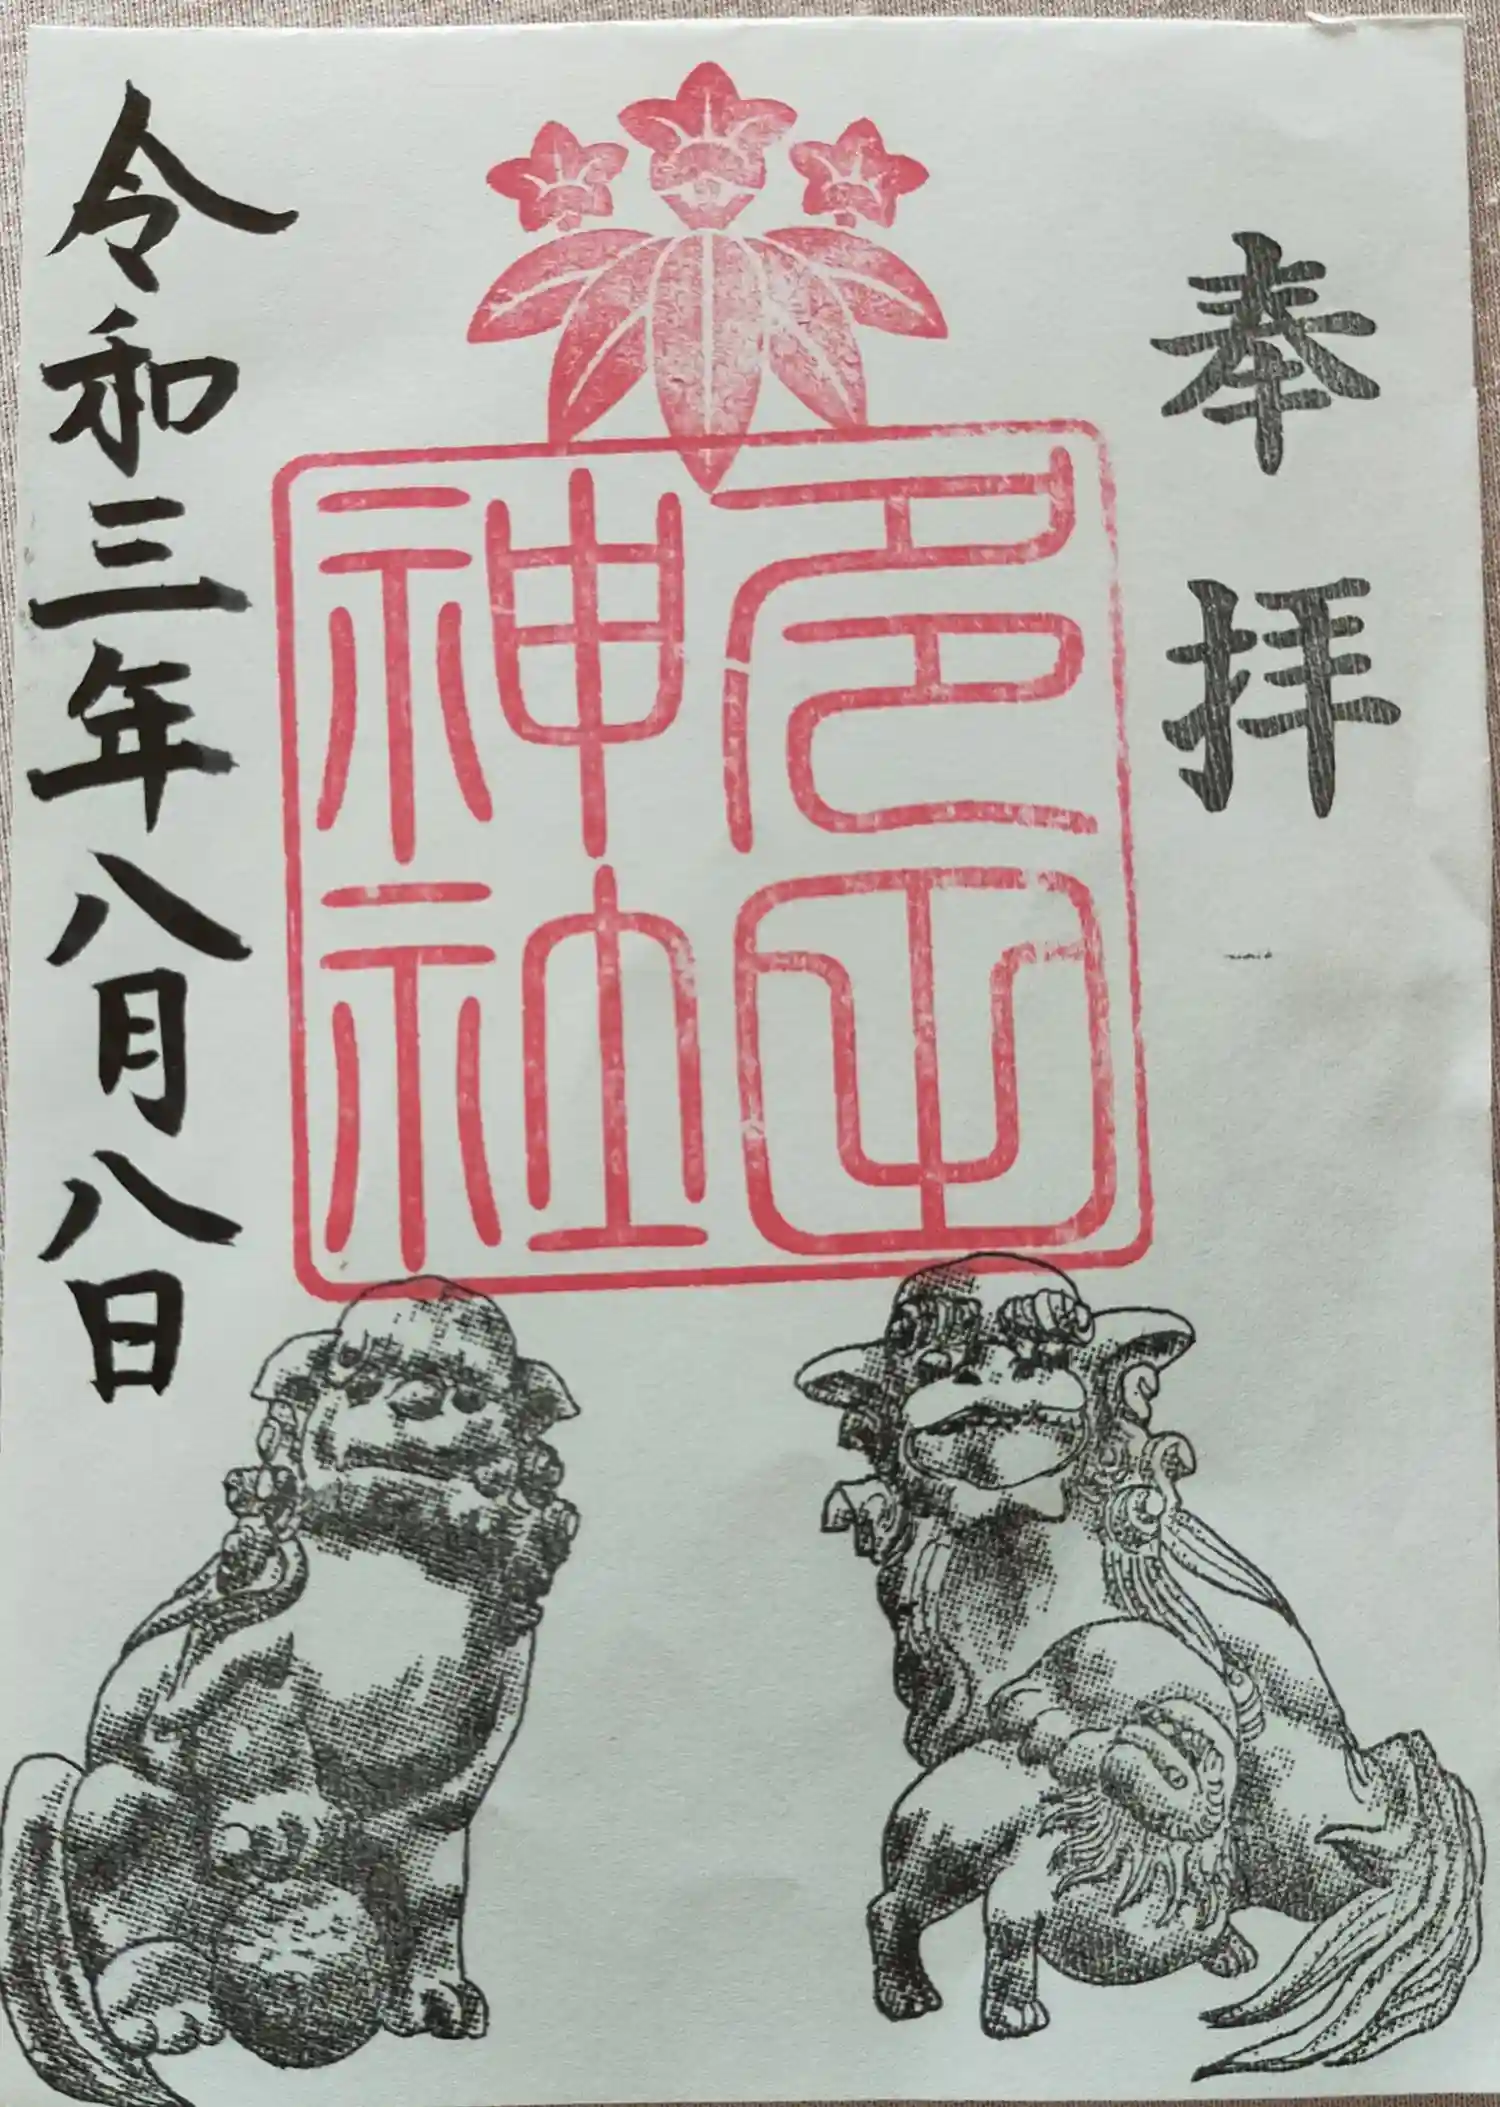 奉拝
多田
神社
令和三年八月八日